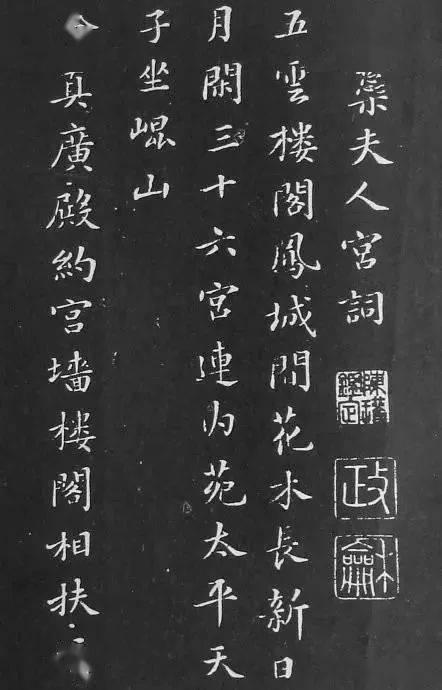 蘂夫人宮詞
政
龢
五雲楼閣鳳城間花木長新日
月閑三十六宮連内苑太平天
子坐崐山
真廣殿約宮墻楼閣相扶